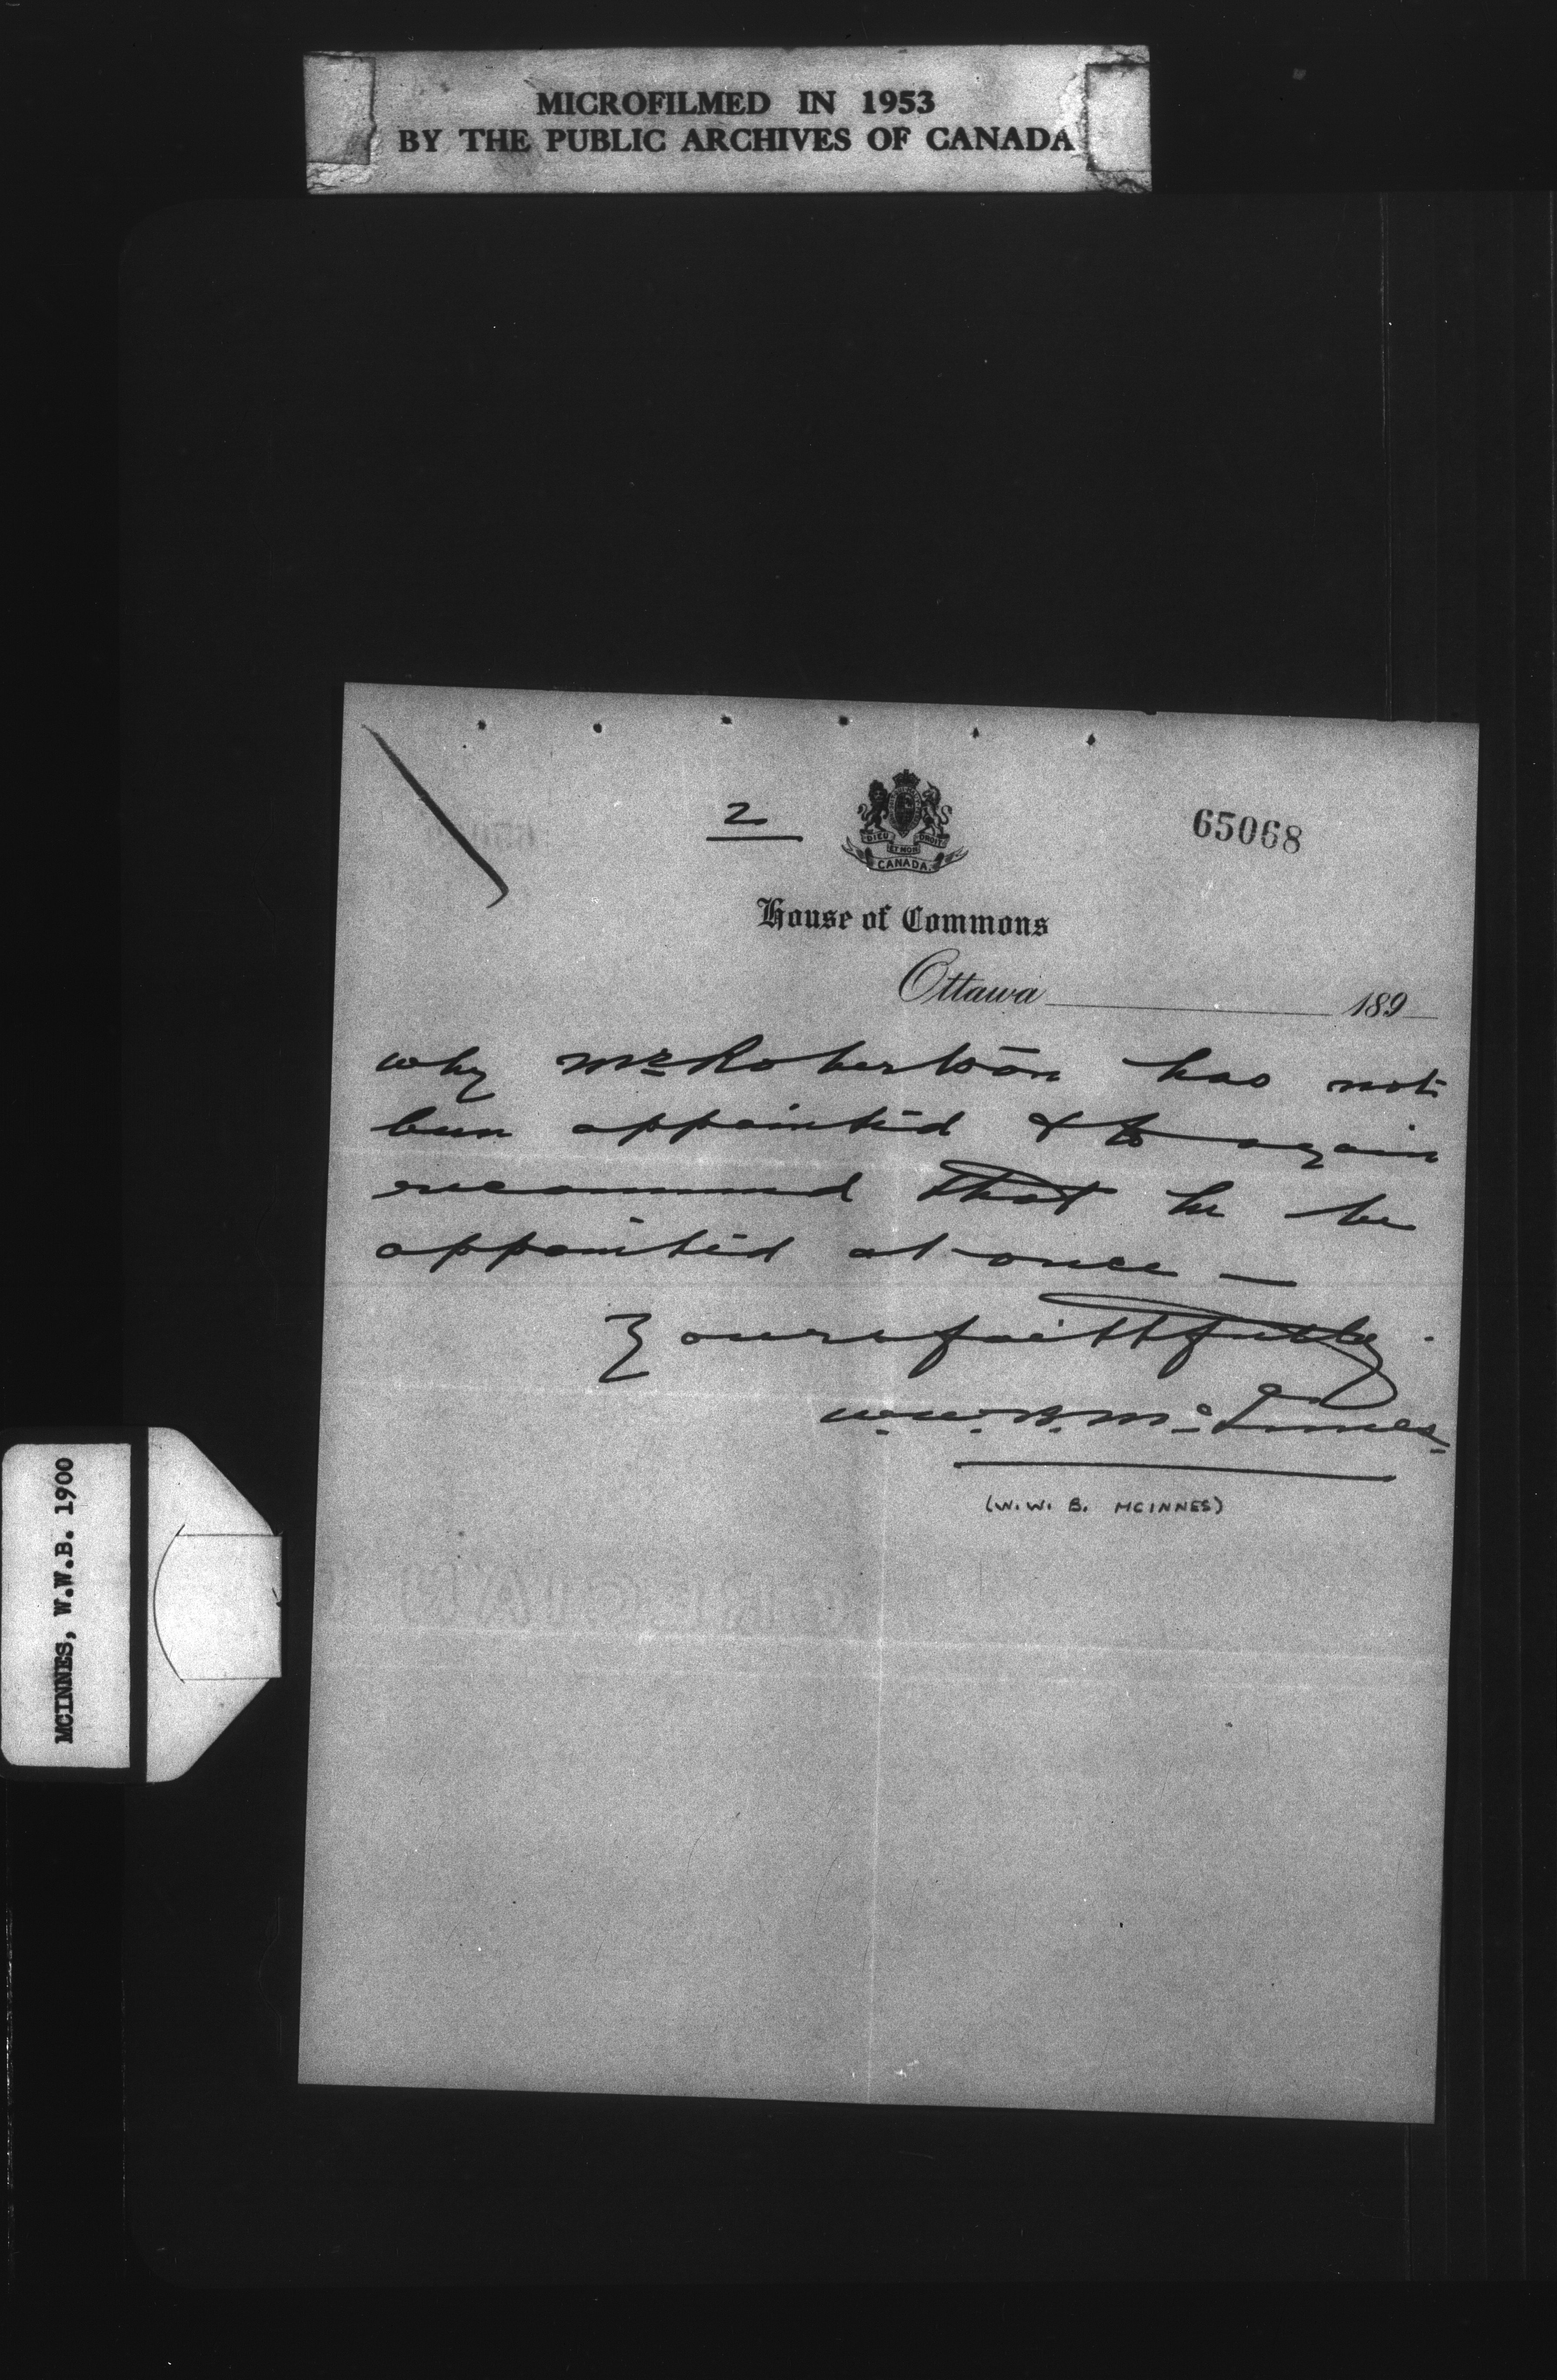 MICROFILMED IN 1953
BY THE PUBLIC ARCHIVES OF CANADA
2
65068
DIEU ET MON DROIT
CANADA
House of Commons
Ottawa 189
why Mr Robertson has not
been appointed & to again
recommend that he be
appointed at once —
Yours faithfully
W.W.B. McInnes
(W.W. B. MCINNES)
MCINNES, W.W.B. 1900